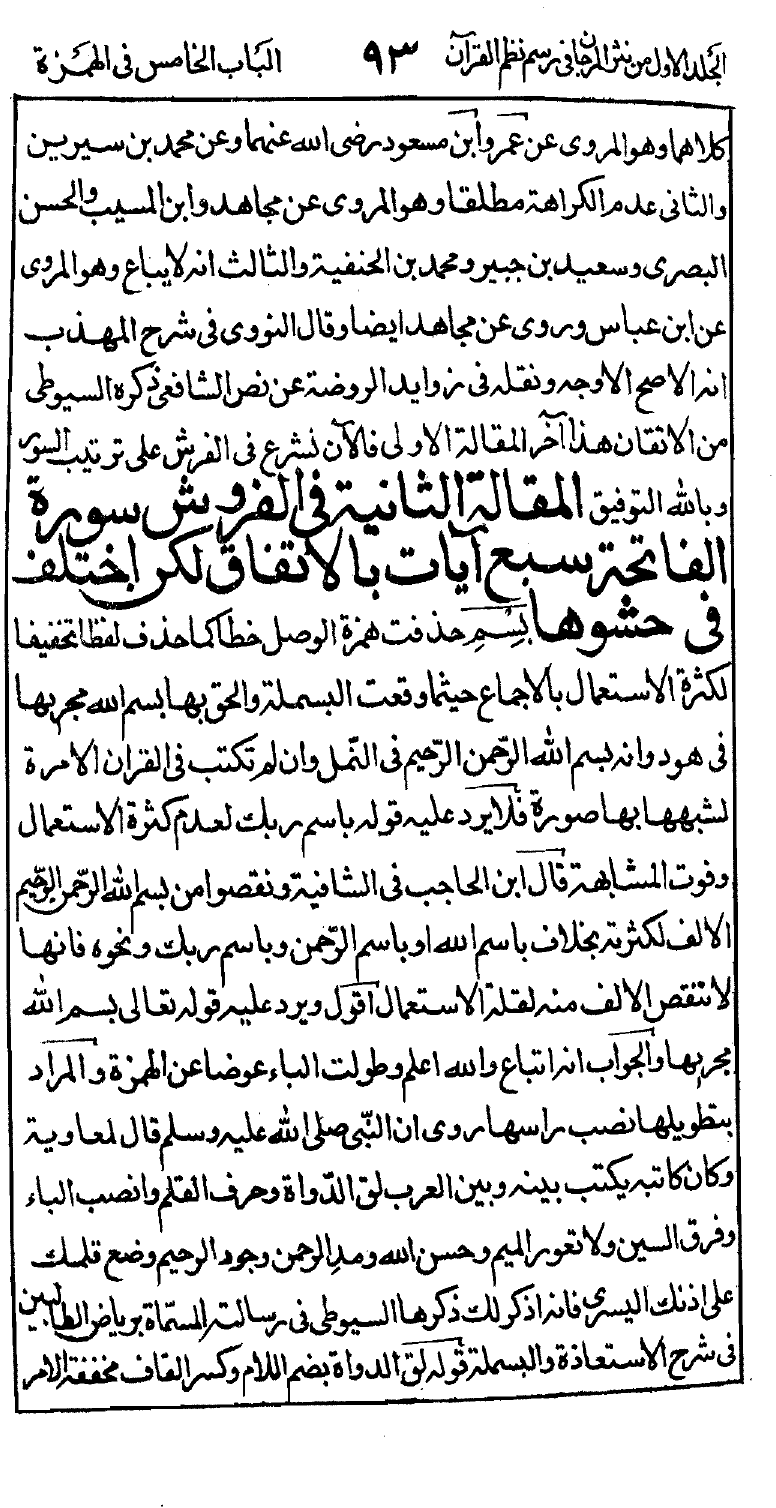 الجلد الاول من نثر المرجان فى رسم نظم القرآن ٩٣ الباب الخامس فى الهمزة
كلاهما وهو المروى عن عمر وابن مسعود رضى الله عنهما وعن محمد بن سيرين
والثانى عدم الكراهة مطلقا وهو المروى عن مجاهد وابن المسيب والحسن
البصرى وسعيد بن جبير ومحمد بن الحنفية والثالث انه لا يباع وهو المروى
عن ابن عباس وروى عن مجاهد ايضا وقال النووى فى شرح المهذب
انه الاصح الاوجه ونقله فى زوايد الروضة عن نص الشافعى ذكره السيوطى
من الاتقان هذا آخر المقالة الاولى فالآن نشرع فى الفرش على ترتيب السور
وبالله التوفيق المقالة الثانية فى الفروش سورة
الفاتحة سبع آيات بالاتفاق لكن اختلف
فى حشوها بِسْمِ حذفت همزة الوصل خطا كما حذف لفظا تخفيفا
لكثرة الاستعمال بالاجماع حيثما وقعت البسملة والحق بها بسم الله مجربها
فى هود وانه بسم الله الرّحمن الرّحيم فى النّمل وان لم تكتب فى القران الا مرة
لشبهها بها صورة فلا يرد عليه قوله باسم ربك لعدم كثرة الاستعمال
وفوت المشابهة قال ابن الحاجب فى الشافية ونقصوا من بسم الله الرّحمن الرّحيم
الالف لكثرته بخلاف باسم الله او باسم الرّحمن وباسم ربك ونحوه فانها
لا تنقص الالف منه لقلة الاستعمال اقول ويرد عليه قوله تعالى بسم الله
مجربها والجواب انه اتباع والله اعلم وطولت الباء عوضا عن الهمزة والمراد
بتطويلها نصب راسها روى ان النّبى صلى الله عليه وسلم قال لمعاوية
وكان كاتبه يكتب بينه وبين العرب لق الدّواة وحرف القلم وانصب الباء
وفرق السين ولا تعور الميم وحسن الله ومد الرحمن وجود الرحيم وضع قلمك
على اذنك اليسرى فانه اذكر لك ذكرها السيوطى فى رسالته المسمّاة برياض الطالبين
فى شرح الاستعاذة والبسملة قوله لق الدواة بضم اللام وكسر القاف مخففة الامر